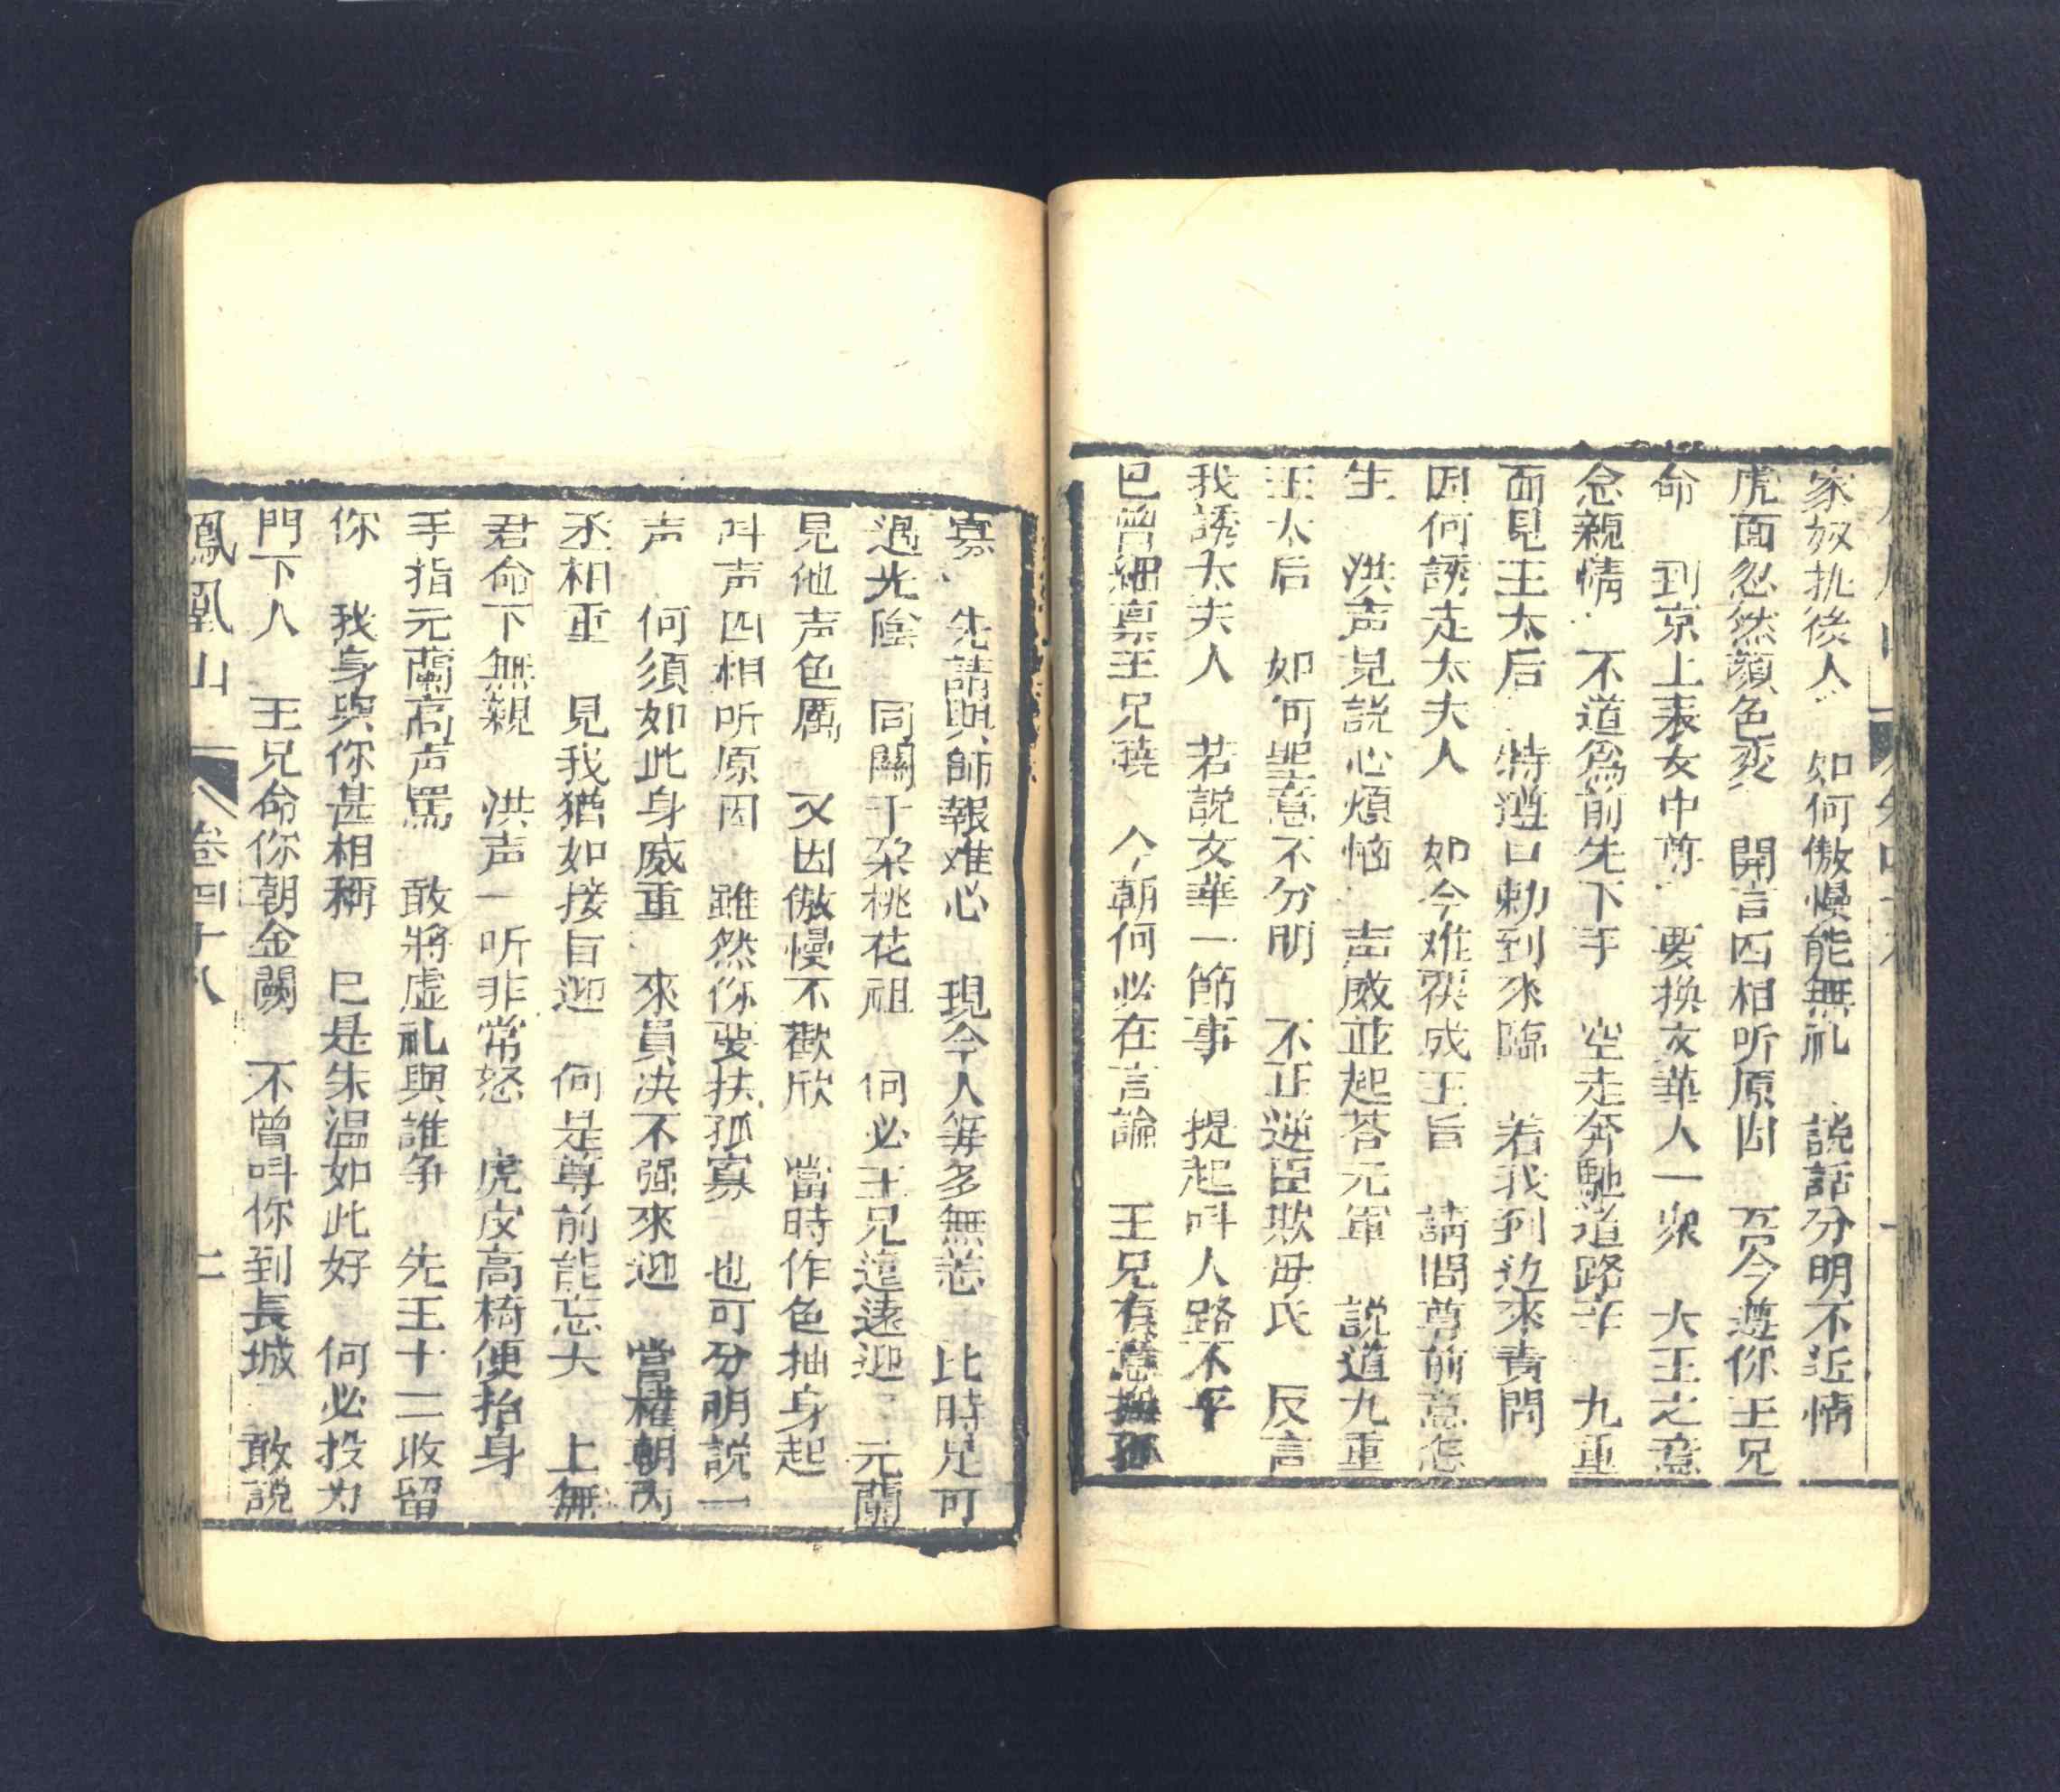 家奴扎後人 如何傲慢能無礼 説話分明不近情
虎面忽然顔色変 開言四相听原因 吾今遵你王兄
命 到京上表女中尊 要换文華人一衆 大王之意
念親情 不道爲前先下手 空走奔馳道路辛 九重
面見王太后 特遵口勅到來臨 着我到边來責問
因何誘走太夫人 如今难覆成王旨 請問尊前意怎
生 洪声見説心煩惱 声威並起荅元軍 説道九重
王太后 如何聖意不分明 不正逆臣欺母氏 反言
我誘太夫人 若説文華一節事 提起呌人路不平
已曾細禀王兄曉 今朝何必在言論 王兄有意撫孤
寡 先請與師報难心 現今人等多無恙 比時足可
過光陰 同關千朶桃花祖 何必王兄遣遠迎 元蘭
見他声色厲 又因傲慢不歡欣 當時作色抽身起
呌声四相听原因 雖然你要扶孤寡 也可分明説一
声 何須如此身威重 來員决不强來迎 當權朝丙
丞相重 見我猶如接旨迎 何是尊前能忘大 上無
君命下無親 洪声一听非常怒 虎皮高椅便抬身
手指元蘭高声罵 敢將虚礼與誰争 先王十二收留
你 我身與你甚相稱 已是朱温如此好 何必投为
門下人 王兄命你朝金闕 不曾呌你到長城 敢説
鳳凰山 卷四十八 二